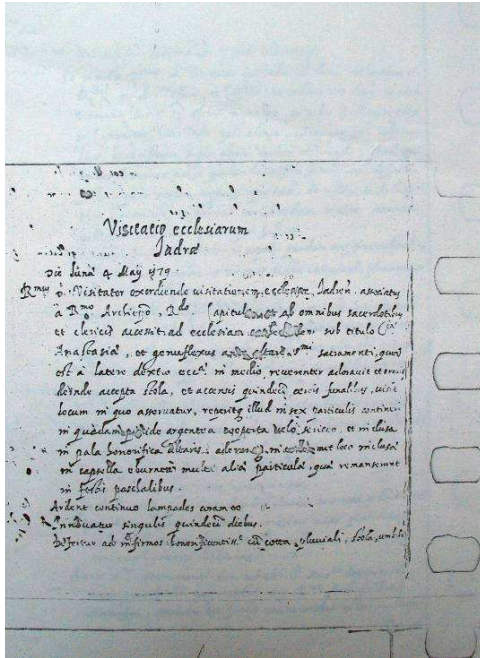 Visitatio ecclesiarum
Jadræ
Die lunæ 4 Maij
R.mus Visitator exordiendo visitationem ecclesiæ Jadren. associatus
a R.mo Archiep.o, R.do Capitulo et ab omnibus sacerdotibus
et clericis accessit ad ecclesiam sub titulo
Anastasiæ, et genuflexus ante altare s.mi sacramenti, quod
est à latere dextro ecc.æ in medio, reverenter adoravit et oravit
deinde accepta stola, et accensis quindecim cereis funalibus, visit.
locum in quo asservatur, reperijt illud in sex particulis contineri
in quadam pixide argentea cooperta velo serico, et inclusa
in pala honorifica altaris. in loco inclusa
in capsella eburnea multæ aliæ particulæ, quæ remanserunt
in festis paschalibus.
Ardent continuo lampades coram eo
Innovatur singulis quindecim diebus.
Defertur ad infirmos cum cotta, pluviali, stola,